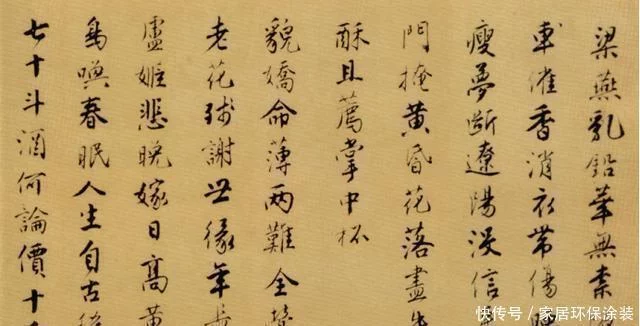 梁燕乳鉛華無柰
車催香消衣帶傷
瘦夢斷遼陽沒信
門掩黃昏花落盡
酥且薦掌中杯
貌嬌命薄兩難全
老花殘謝世緣年
盧姬悲晚嫁日高黃
鳥喚春眠人生自古
七十斗酒何論價十
快传号/家居环保涂装